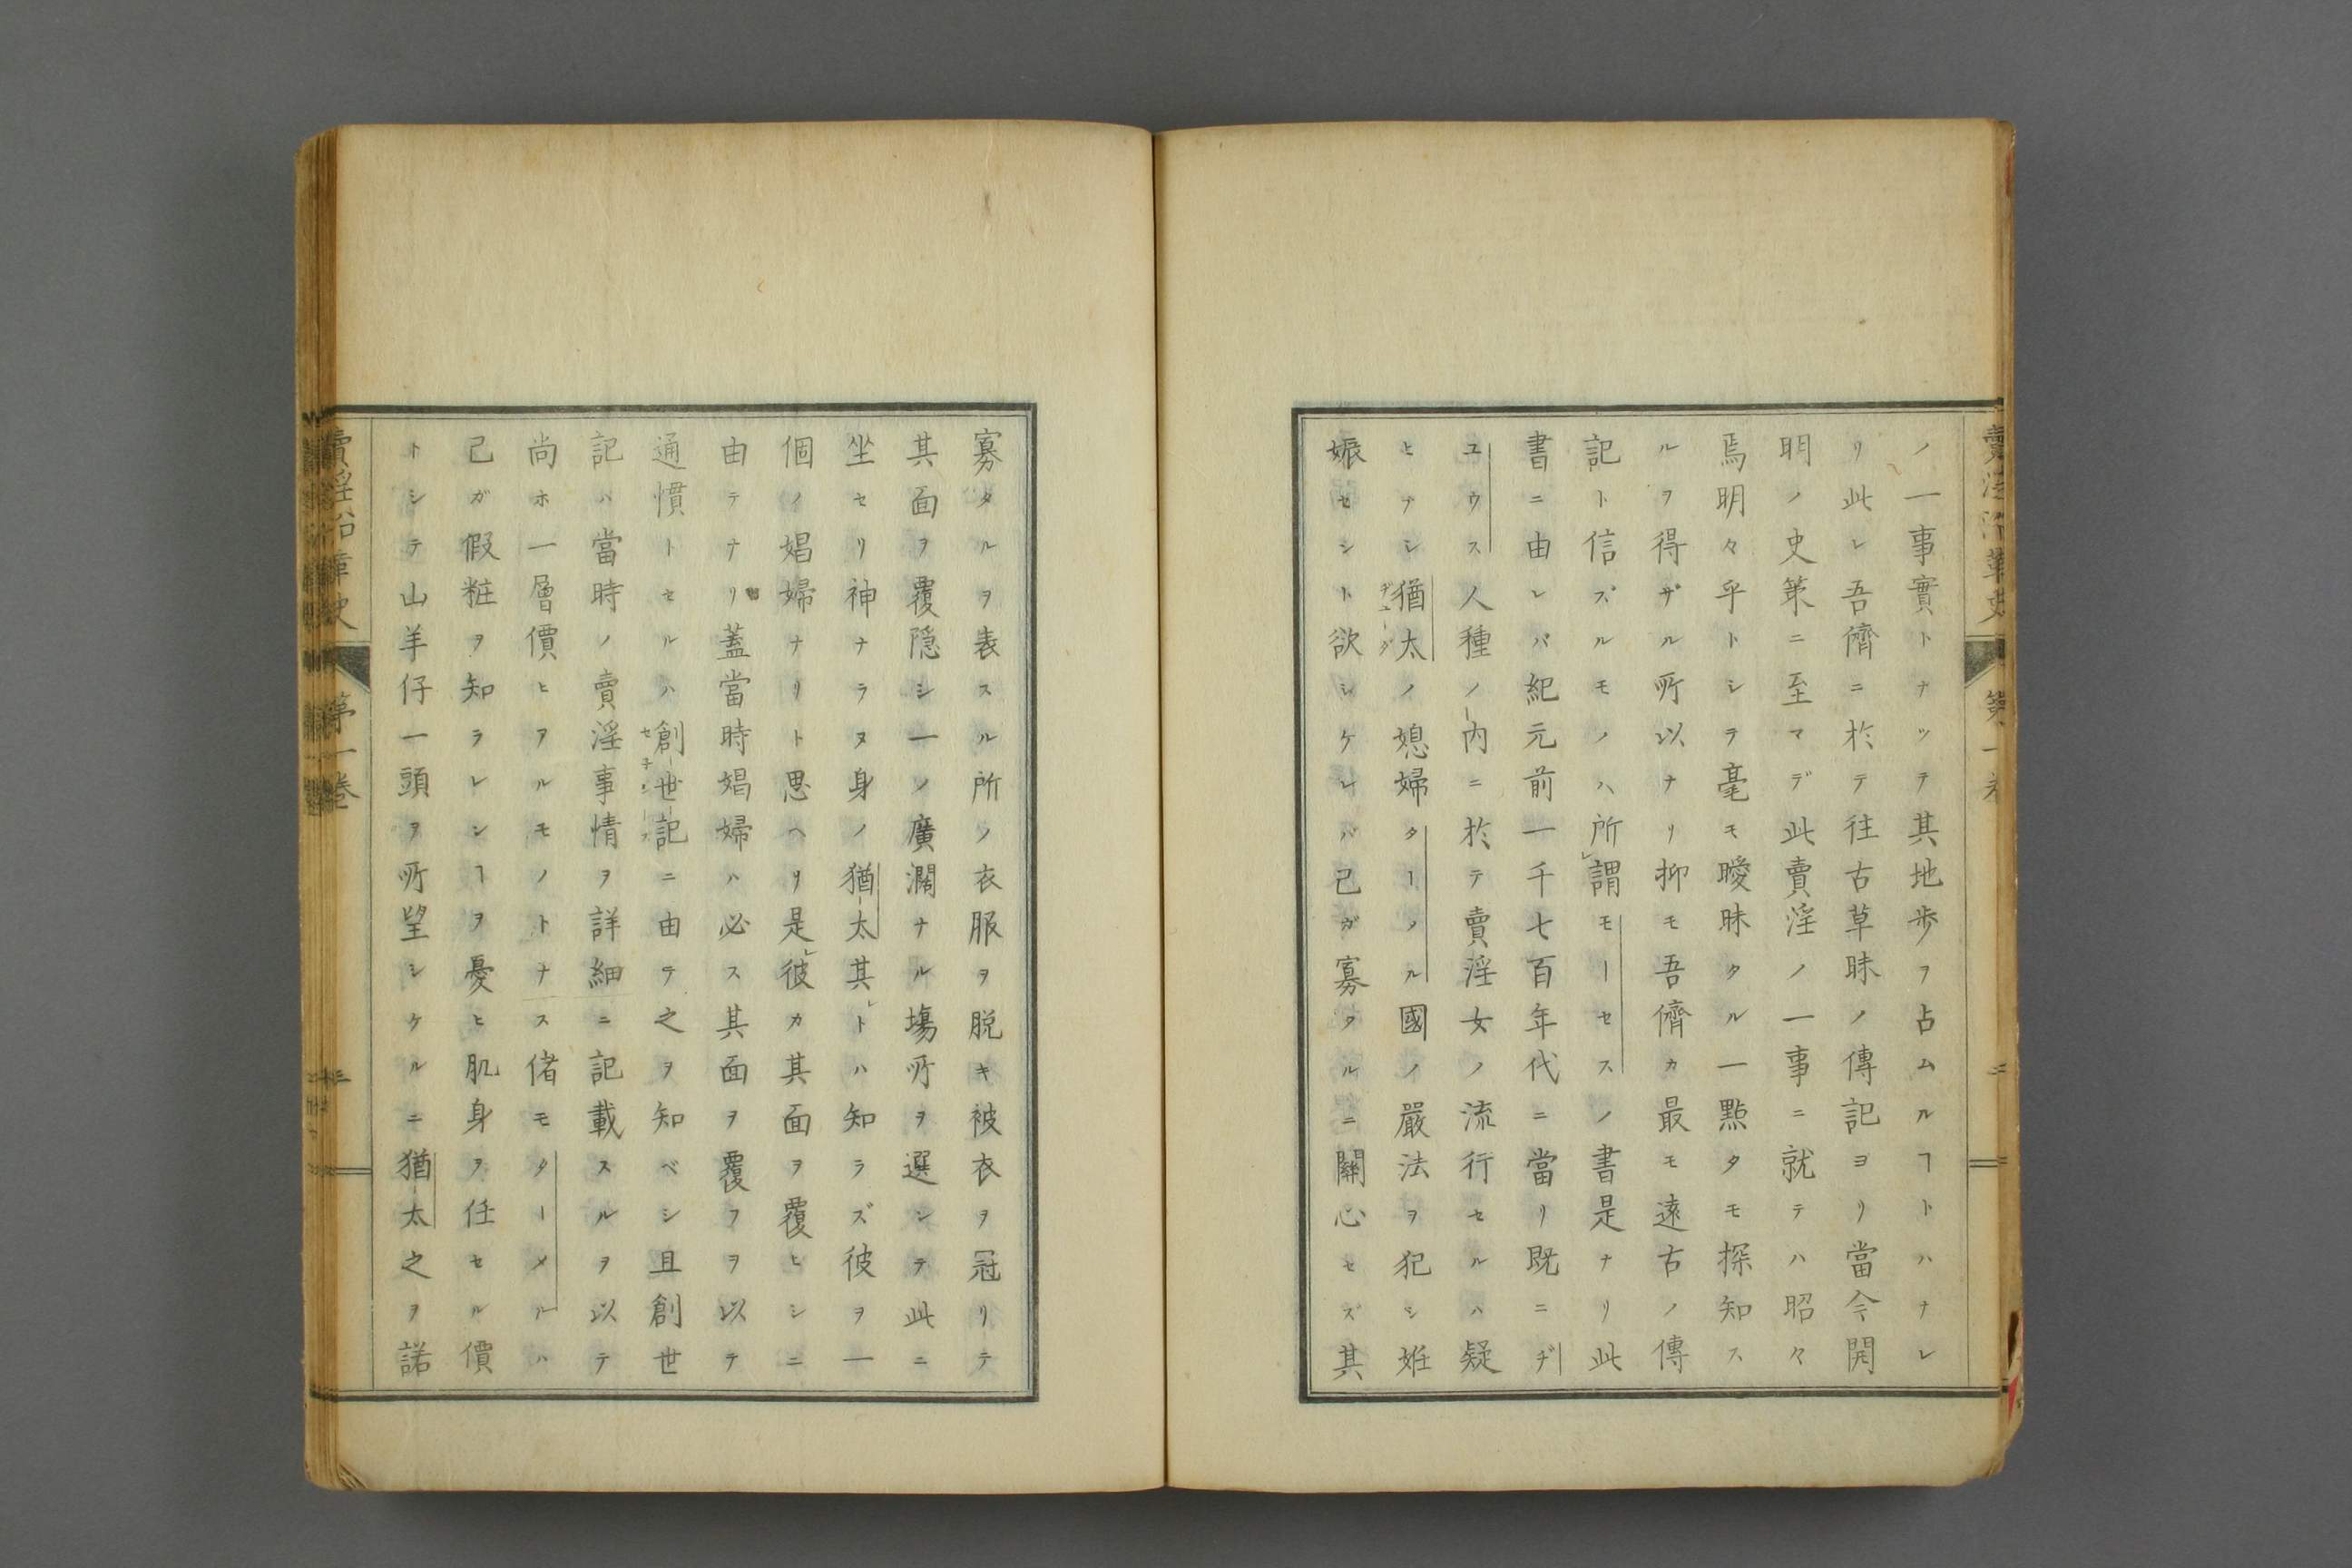 ノ一事實トナツテ其地歩ヲ占ムルヿトハナレ
リ此レ吾儕ニ於テ往古草昧ノ傳記ヨリ當今開
明ノ史策ニ至マデ此賣淫ノ一事ニ就テハ昭々
焉明々乎トシテ毫モ曖昧タル一點タモ探知ス
ルヲ得ザル所以ナリ抑モ吾儕カ最モ遠古ノ傳
記ト信ズルモノハ所謂モーセスノ書是ナリ此
書ニ由レバ紀元前一千七百年代ニ當リ既ニヂ
ユウス人種ノ内ニ於テ賣淫女ノ流行セルハ疑
ヒナシ猶太ノ媳婦タームル國ノ嚴法ヲ犯シ姙
娠セシト欲シケレバ己ガ寡タルニ關心セズ其
寡タルヲ表スル所ノ衣服ヲ脱キ被衣ヲ冠リテ
其面ヲ覆隠シ一ノ廣濶ナル塲所ヲ選ンテ此ニ
坐セリ神ナラヌ身ノ猶太其レトハ知ラズ彼ヲ一
個ノ娼婦ナリト思ヘリ是レ彼カ其面ヲ覆ヒシニ
由テナリ蓋當時娼婦ハ必ス其面ヲ覆フヲ以テ
通慣トセルハ創世記ニ由テ之ヲ知ベシ且創世
記ハ當時ノ賣淫事情ヲ詳細ニ記載スルヲ以テ
尚ホ一層價ヒアルモノトナス偖モターメルハ
己ガ假粧ヲ知ラレンヿヲ憂ヒ肌身ヲ任セル價
トシテ山羊仔一頭ヲ所望シケルニ猶太之ヲ諾
賣淫沿革史
第一巻
三